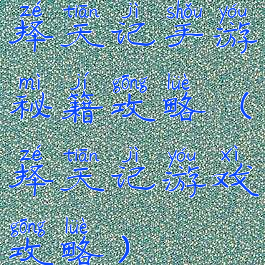 zé tiān jì shǒu yóu
择天记手游
mì jí gōng lüè
秘籍攻略（
zé tiān jì yóu xì
择天记游戏
gōng lüè
攻略）